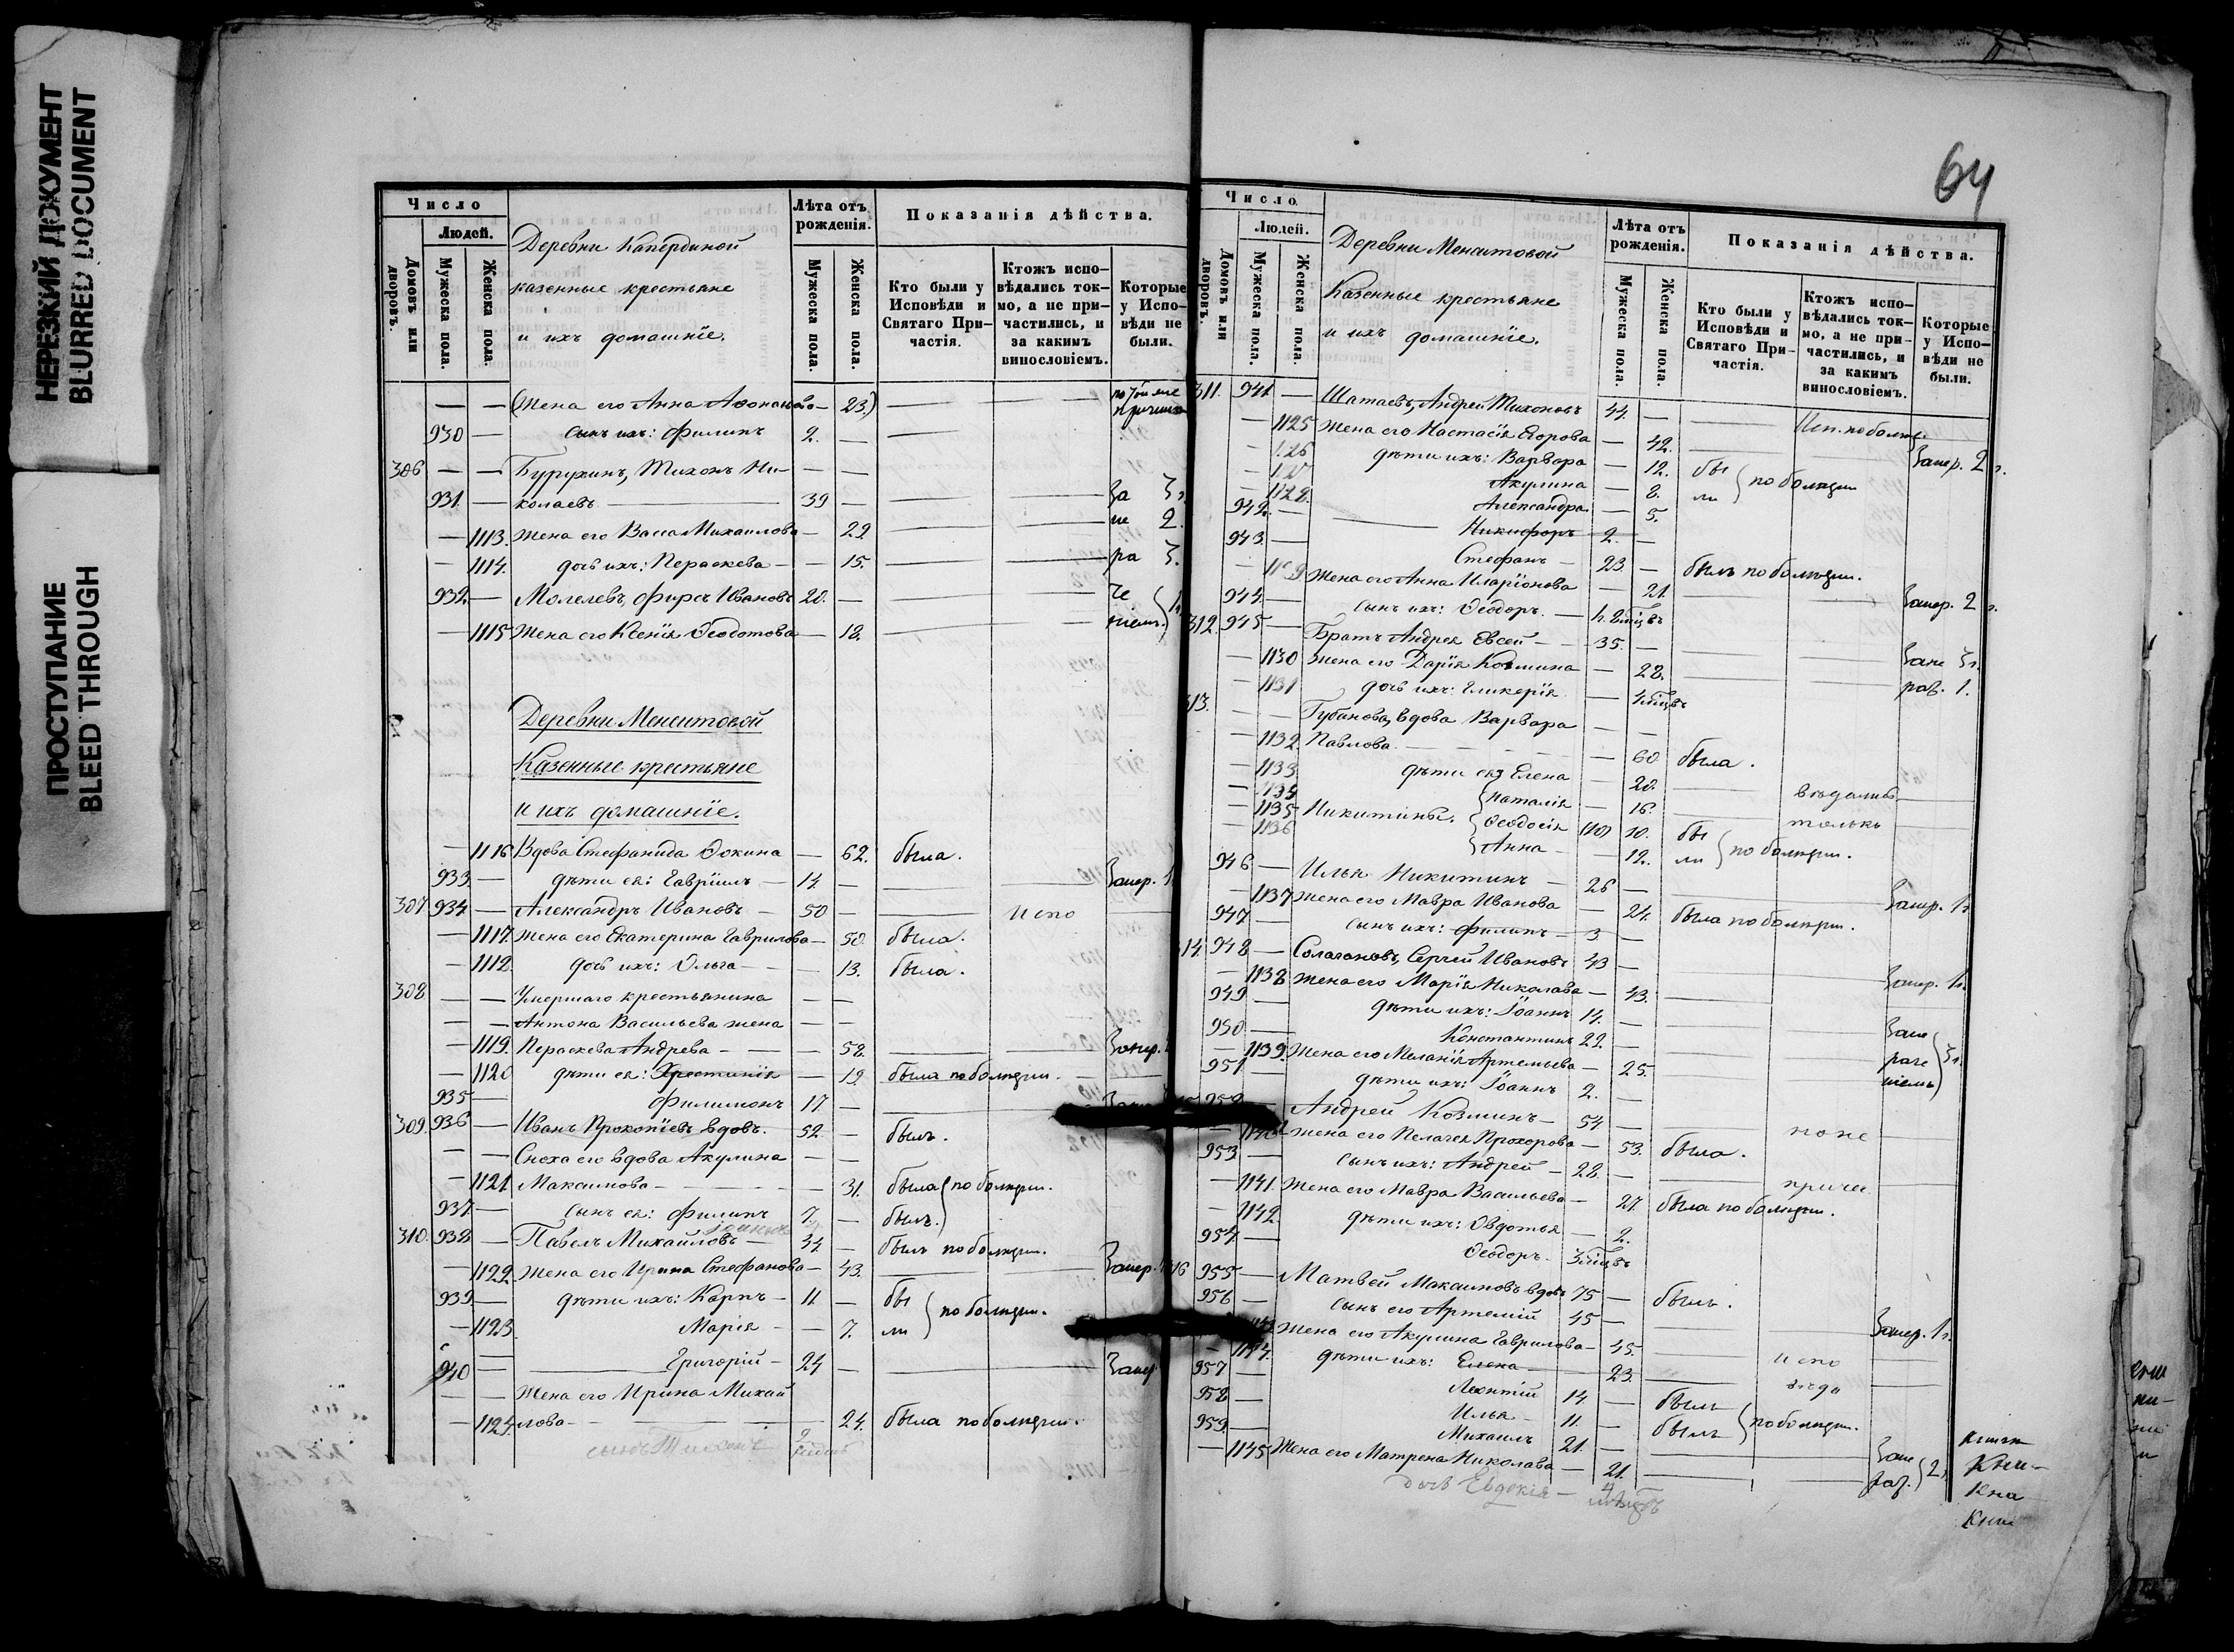 НЕРЕЗКИЙ ДОКУМЕНТ
BLURRED DOCUMENT
ПРОСТУПАНИЕ
BLEED THROUGH
Число
Людей.
Домовъ или дворовъ.
Мужеска пола.
Женска пола.
Деревни Капердиной
казенные крестьяне
и ихъ домашніе.
Лѣта отъ рожденія.
Мужеска пола.
Женска пола.
Показанія дѣйства.
Кто были у Исповѣди и Святаго Причастія.
Ктожъ исповѣдались токмо, а не причастились, и за какимъ винословіемъ.
Которые у Исповѣди не были.
— — (Жена его Анна Аѳонасьева — 23.)
930 — сынъ ихъ: Филипъ 2. —
306 — — Бурухинъ, Тихонъ Ни- — —
931. — колаевъ 39 — За 3 г.
— 1113. Жена его Васса Михаилова — 22 не 2.
— 1114. дочь ихъ: Параскева — 15. ра 3.
932. — Молелевъ, Фирсъ Ивановъ 20. — че
— 1115 Жена его Ксенія Ѳеодотова — 18. ніемъ. 1.
Деревни Менситовой
Казенные крестьяне
и ихъ домашніе.
— 1116 Вдова Стефанида Ѳокина — 62. была.
933. — дѣти ея: Гавріилъ 14. — Запер. 1
307 934 — Александръ Ивановъ 50 — Испо
— 1117. Жена его Екатерина Гаврилова — 50. была.
— 1118. дочь ихъ: Ольга — 13. была.
308 — — Умершаго крестьянина — —
— — Антона Васильева жена — —
— 1119. Параскева Андрева — 58. Запер.
— 1120 дѣти ея: Христинія — 19. была по болѣзни.
935 — Филимонъ 17 —
309. 936 — Иванъ Прокопіевъ вдовъ. 52. — былъ.
— — Сноха его вдова Акулина — —
— 1121 Максимова — 31. была по болѣзни.
937 — сынъ ея: Филипъ 7. — былъ.
310. 938 — Павелъ Михайловъ 34 — былъ по болѣзни.
— 1122 Жена его Ирина Стефанова — 43. Запер.
939. — дѣти ихъ: Карпъ 11. — бы
— 1123 Марія — 7. ли по болѣзни.
940 — Григорій 24 — Запер
— — Жена его Ирина Михай
— 1124. лова 24. была по болѣзни.
сынъ Тихонъ 2 недѣль
64
Число
Людей.
Домовъ или дворовъ.
Мужеска пола.
Женска пола.
Деревни Менситовой
Казенные крестьяне
и ихъ домашніе.
Лѣта отъ рожденія.
Мужеска пола.
Женска пола.
Показанія дѣйства.
Кто были у Исповѣди и Святаго Причастія.
Ктожъ исповѣдались токмо, а не причастились, и за какимъ винословіемъ.
Которые у Исповѣди не были.
311. 941. — Шатаевъ, Андрей Тихоновъ 44. — Исп. по болѣз.
— 1125 Жена его Настасія Егорова — 42. Запер. 2 г.
— 1126 дѣти ихъ: Варвара — 12. бы
— 1127 Акулина — 8. ли по болѣзни
— 1128. Александра — 5.
942. — Никифоръ 2. —
943. — Стефанъ 23. — былъ по болѣзни.
— 1129 Жена его Анна Иларіонова — 21. Запер. 2 г.
944. — сынъ ихъ: Ѳеодоръ. мѣсцъ
312. 945 — Братъ Андрея Евсей — 35. —
— 1130 Жена его Дарія Козмина — 28. Запе 3 г.
— 1131 дочь ихъ: Гликерія — 4 мѣсцъ раз. 1.
313. — — Губанова, вдова Варвара — —
— 1132. Павлова. — 60. была.
— 1133 дѣти ея Елена — 20. вѣдались
— 1134 Наталія — 16. только
— 1135 Никитины. Ѳеодосія (10) 10. бы
— 1136 Анна — 12. ли по болѣзни.
946 — Илья Никитинъ 26 — Запер. 1 г.
— 1137 Жена его Мавра Иванова — 24. была по болѣзни.
947 — сынъ ихъ: Филипъ 3 —
314. 948 — Солагановъ, Сергей Ивановъ 43 — Запер. 1 г.
— 1138 Жена его Марія Николаева — 43.
949 — дѣти ихъ: Іоаннъ 14. — Запе
950. — Константинъ 22. — раче 3 г.
— 1139. Жена его Меланія Артемьева — 25. ніемъ
951 — дѣти ихъ: Іоаннъ 2. —
952 — Андрей Козминъ 54 — по не
— 1140 Жена его Пелагея Прохорова — 53. была.
953 — сынъ ихъ: Андрей — 28. — причи
— 1141. Жена его Мавра Васильева — 27. была по болѣзни.
— 1142. дѣти ихъ: Овдотья — 2.
954 — Ѳеодоръ. 3 мѣсцъ
316 955 — Матвей Максимовъ вдовъ 75 — былъ.
956 — сынъ его Артемій 45 — Запер. 1 г.
— 1143 Жена его Акулина Гаврилова — 45. Испо
— 1144. дѣти ихъ: Елена — 23. вѣда
957 — Леонтій 14. — былъ
958 — Илья 11. — былъ по болѣзни.
959. — Михаилъ 21. — Запе
— 1145 Жена его Матрена Николаева — 21. раз. 2.
дочь Евдокія — 4 мѣсцъ